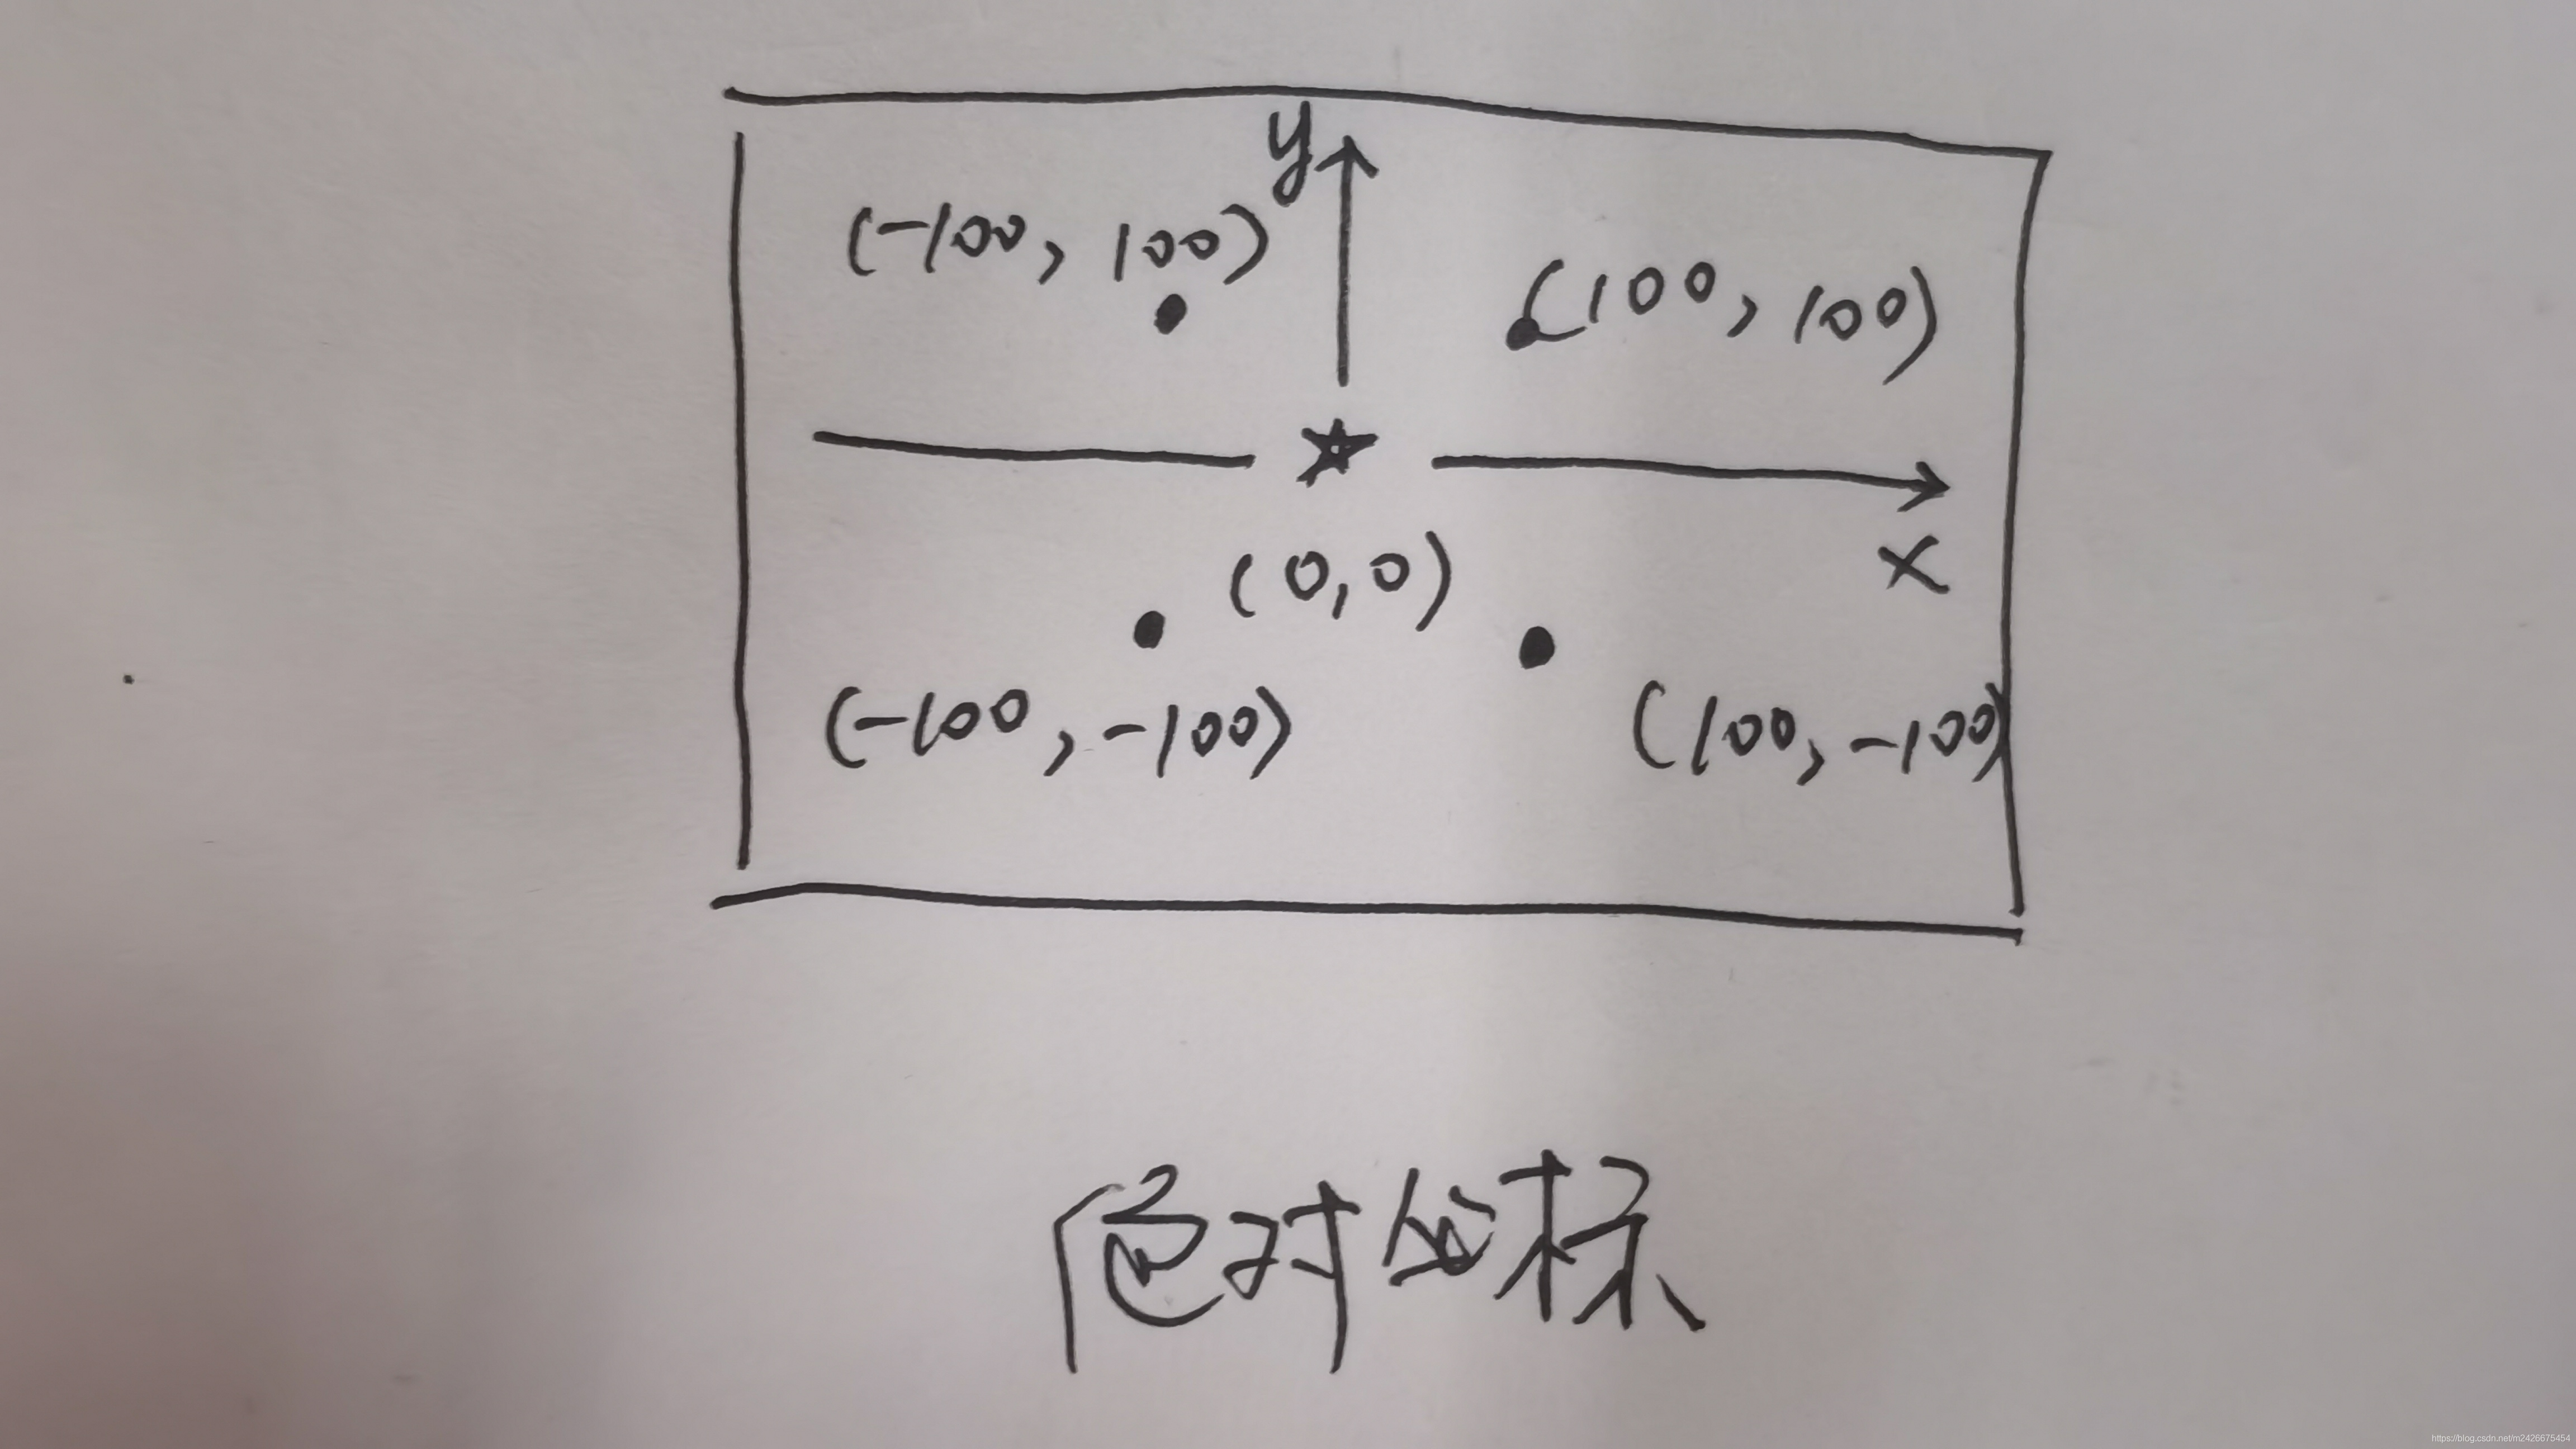 y
(-100, 100)
(100, 100)
x
(0,0)
(-100, -100)
(100, -100)
绝对坐标
https://blog.csdn.net/m2426675454